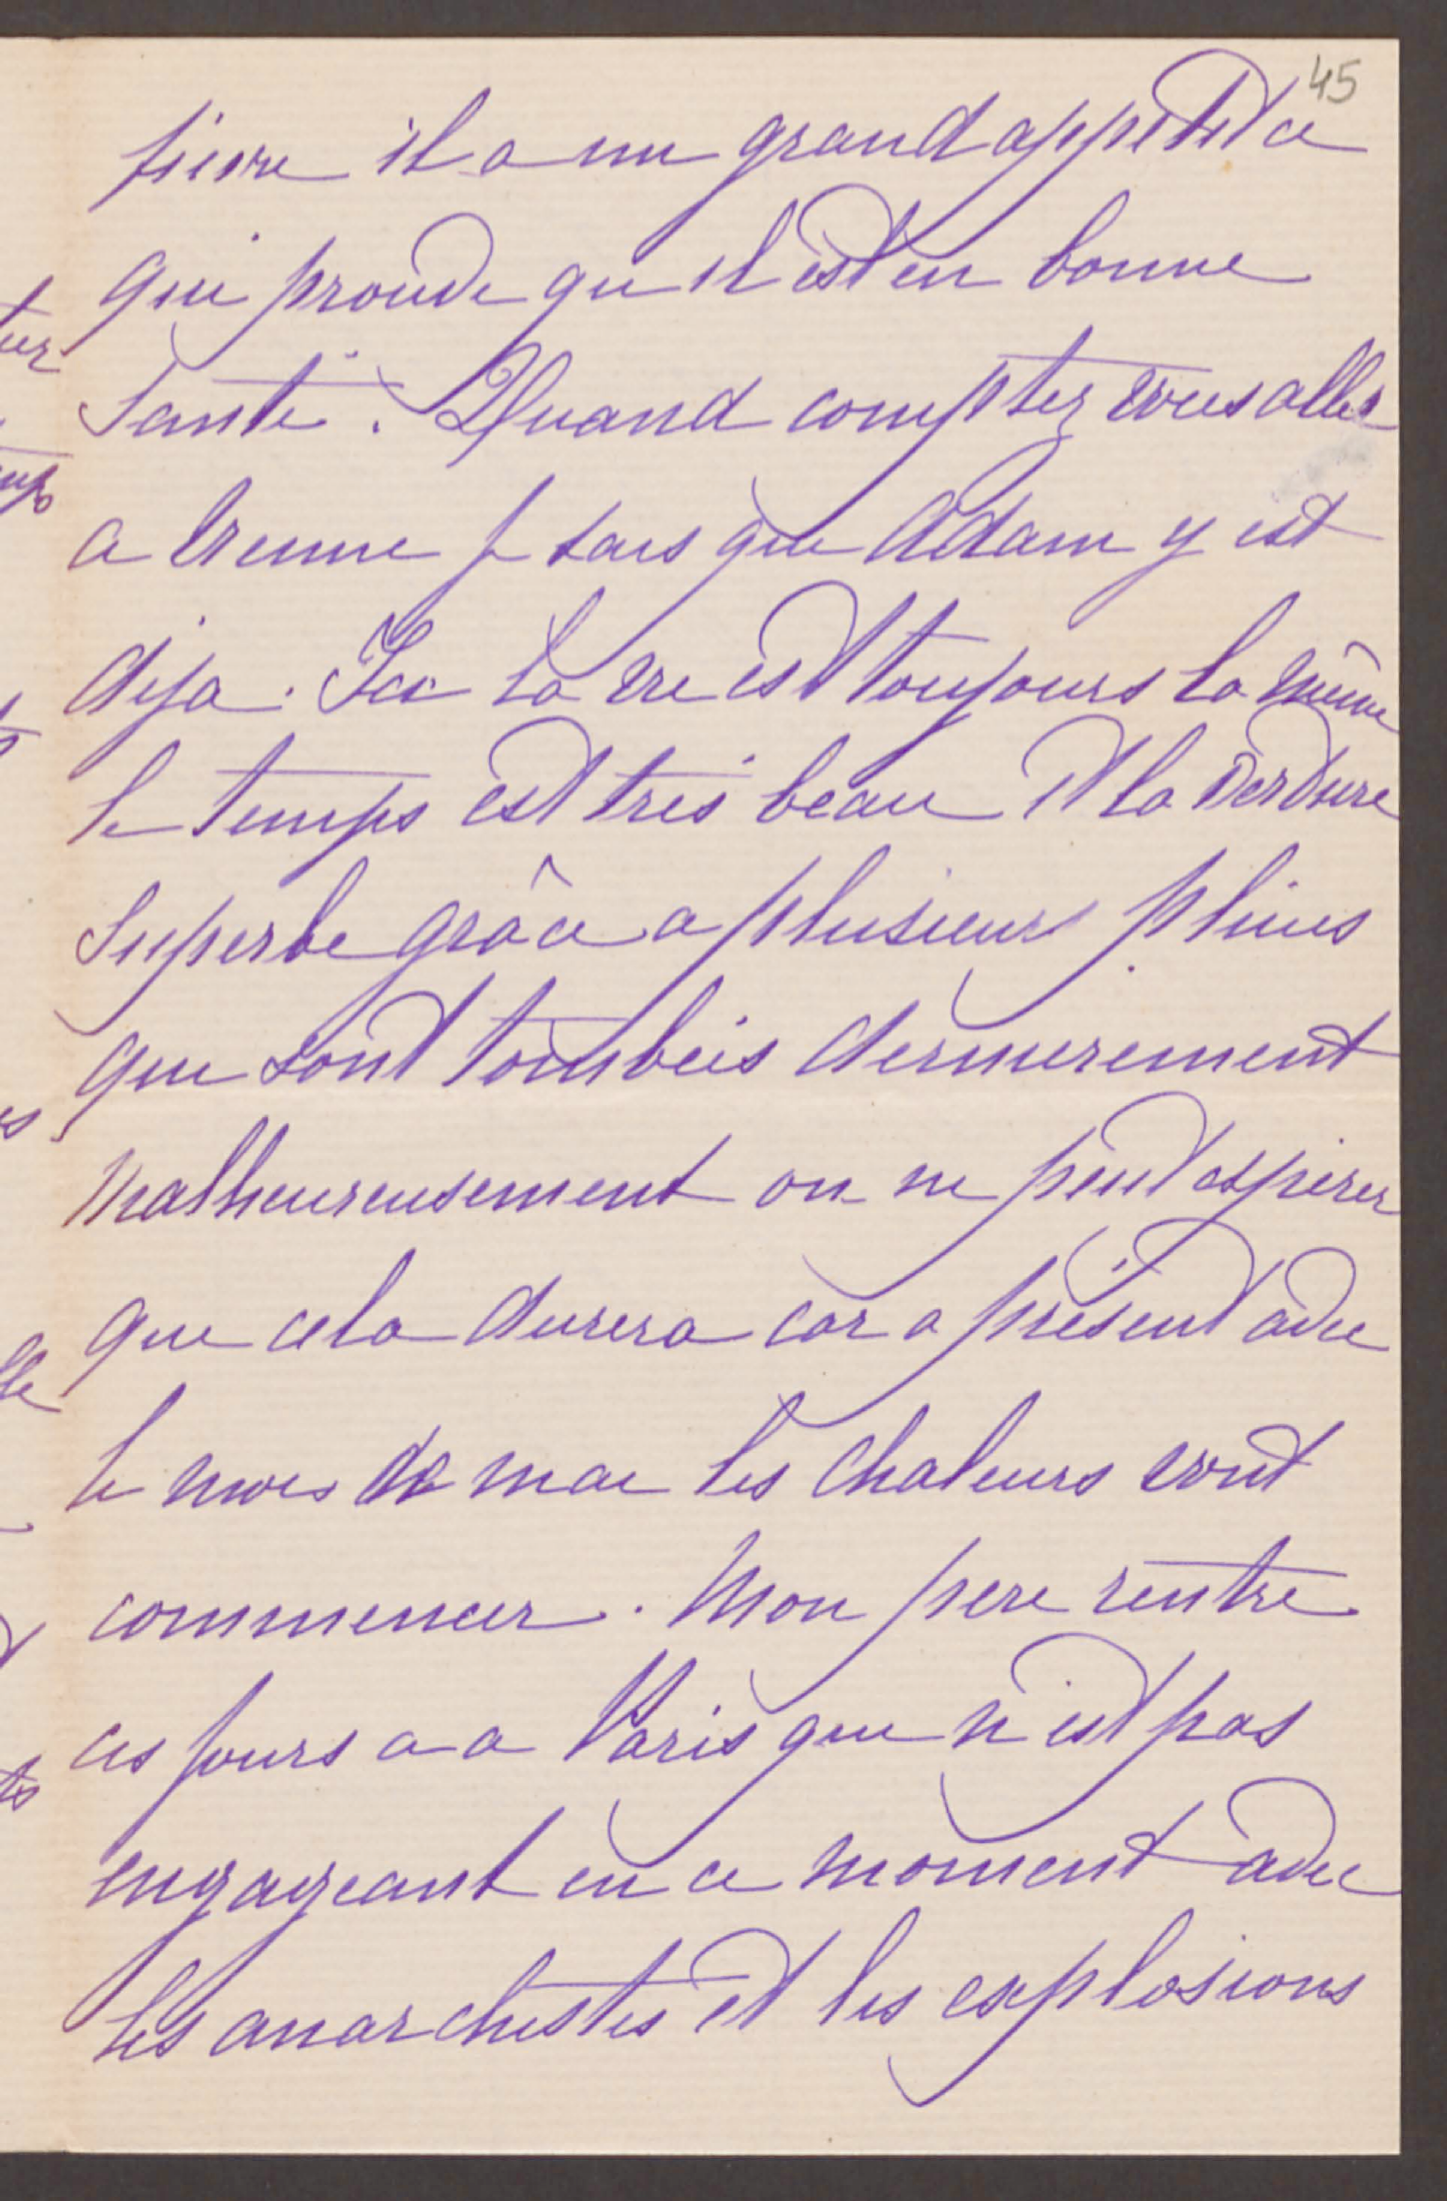 45
fievre il a un grand appetit ce
qui prouve qu il est en bonne
Santé. Quand comptez vous aller
a Vienne je sais que Adam y est
deja. Ici la vie est toujours la même
le temps est trés beau et la verdure
Superbe grâce a plusieurs pluies
qui sont tombées dernierement
Malheureusement on ne peut esperer
que cela durera car a présent avec
le mois de mai les chaleurs vont
commencer. Mon pere rentre
ces jours a a Paris qui n'est pas
engageant en ce moment avec
les anarchistes et les explosions